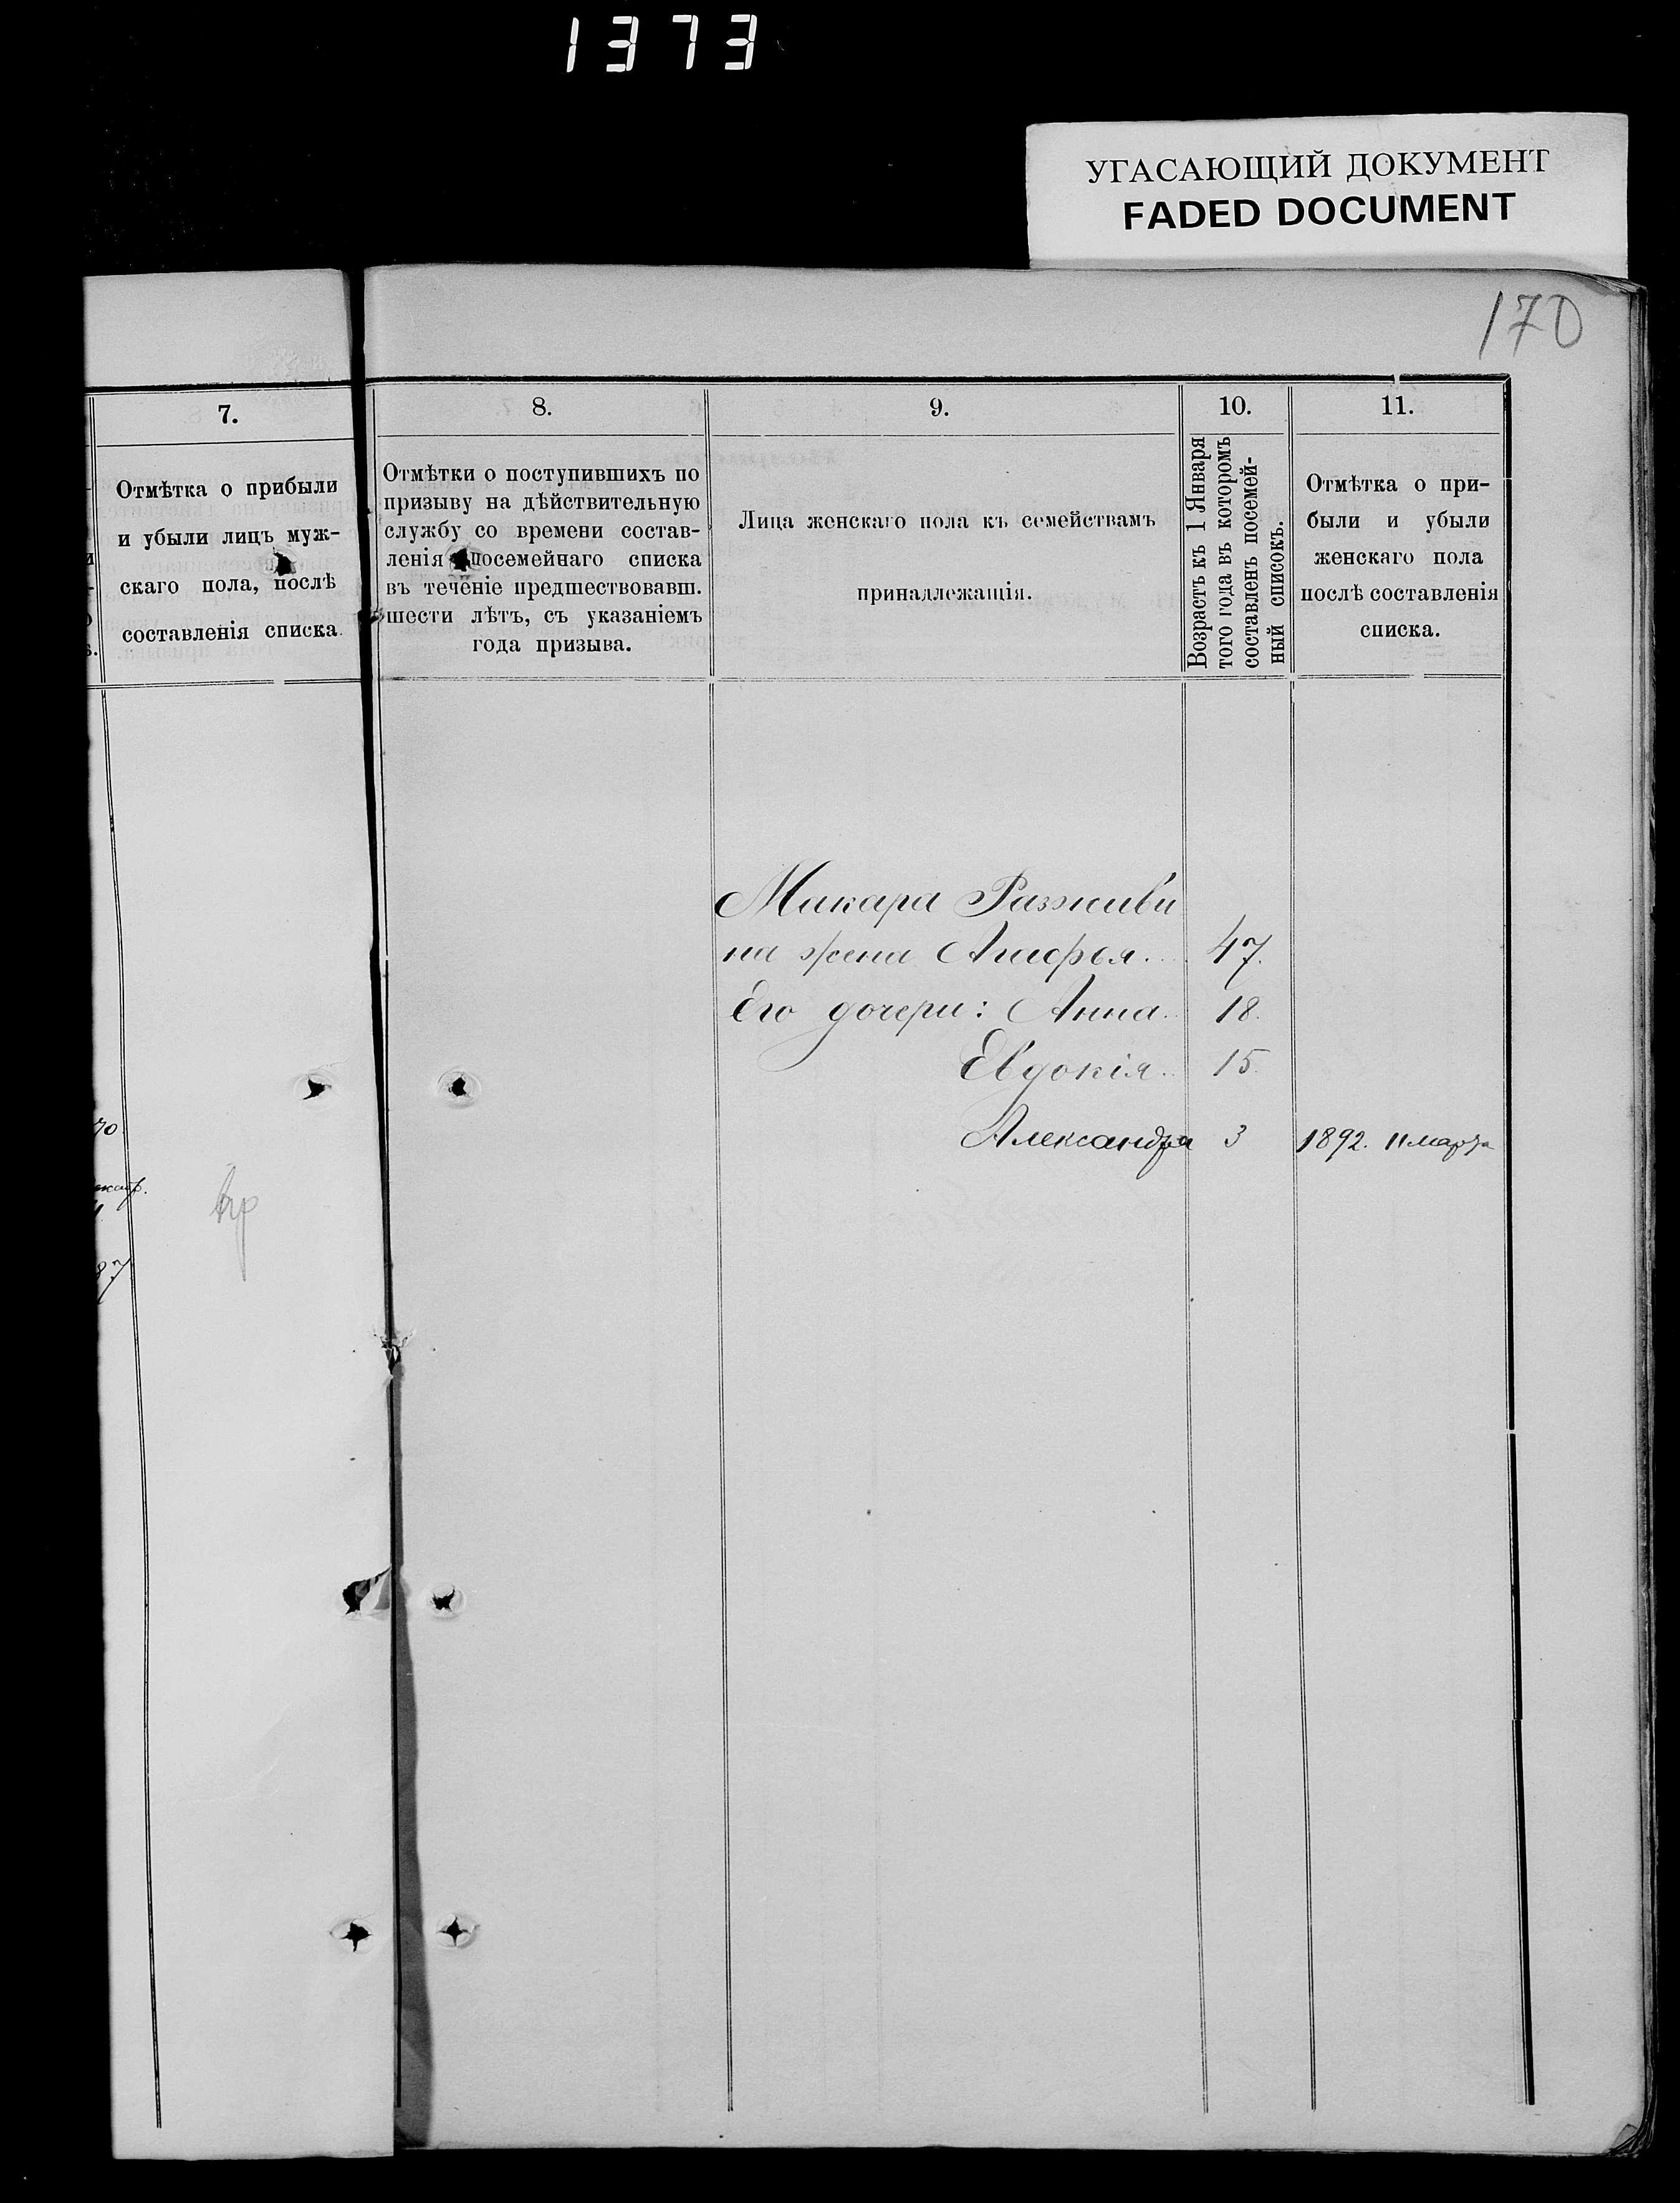 1373
УГАСАЮЩИЙ ДОКУМЕНТ
FADED DOCUMENT
170
7.
Отмѣтка о прибыли
и убыли лицъ муж-
скаго пола, послѣ
составленія списка.
8.
Отмѣтки о поступившихъ по
призыву на дѣйствительную
службу со времени состав-
ленія посемейнаго списка
въ теченіе предшествовавш.
шести лѣтъ, съ указаніемъ
года призыва.
9.
Лица женскаго пола къ семействамъ
принадлежащія.
10.
Возрастъ къ 1 Января
того года въ которомъ
составленъ посемей-
ный списокъ.
11.
Отмѣтка о при-
были и убыли
женскаго пола
послѣ составленія
списка.
Макара Разживи
на жена Агафья. 47.
Его дочери: Анна. 18.
Евдокія. 15.
Александра 3 1892. 11 марта
70.
87